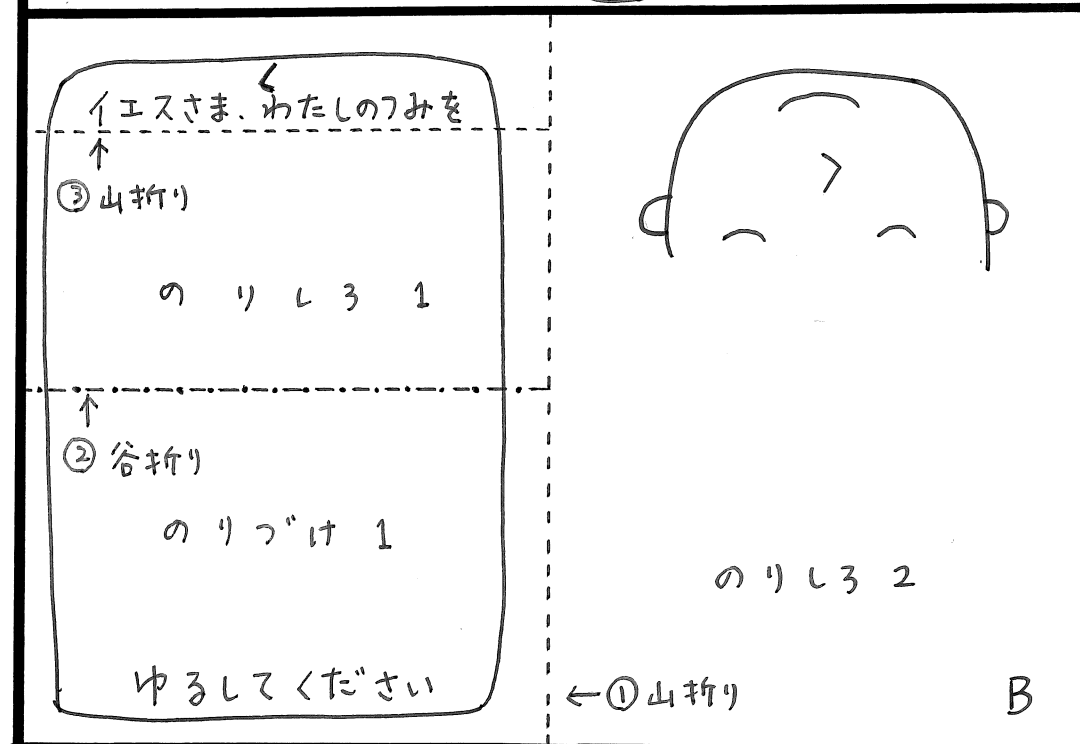 イエスさま、わたしのつみを
↑
③山折り
のりしろ1
↑
②谷折り
のりづけ1
ゆるしてください
のりしろ2
←①山折り
B